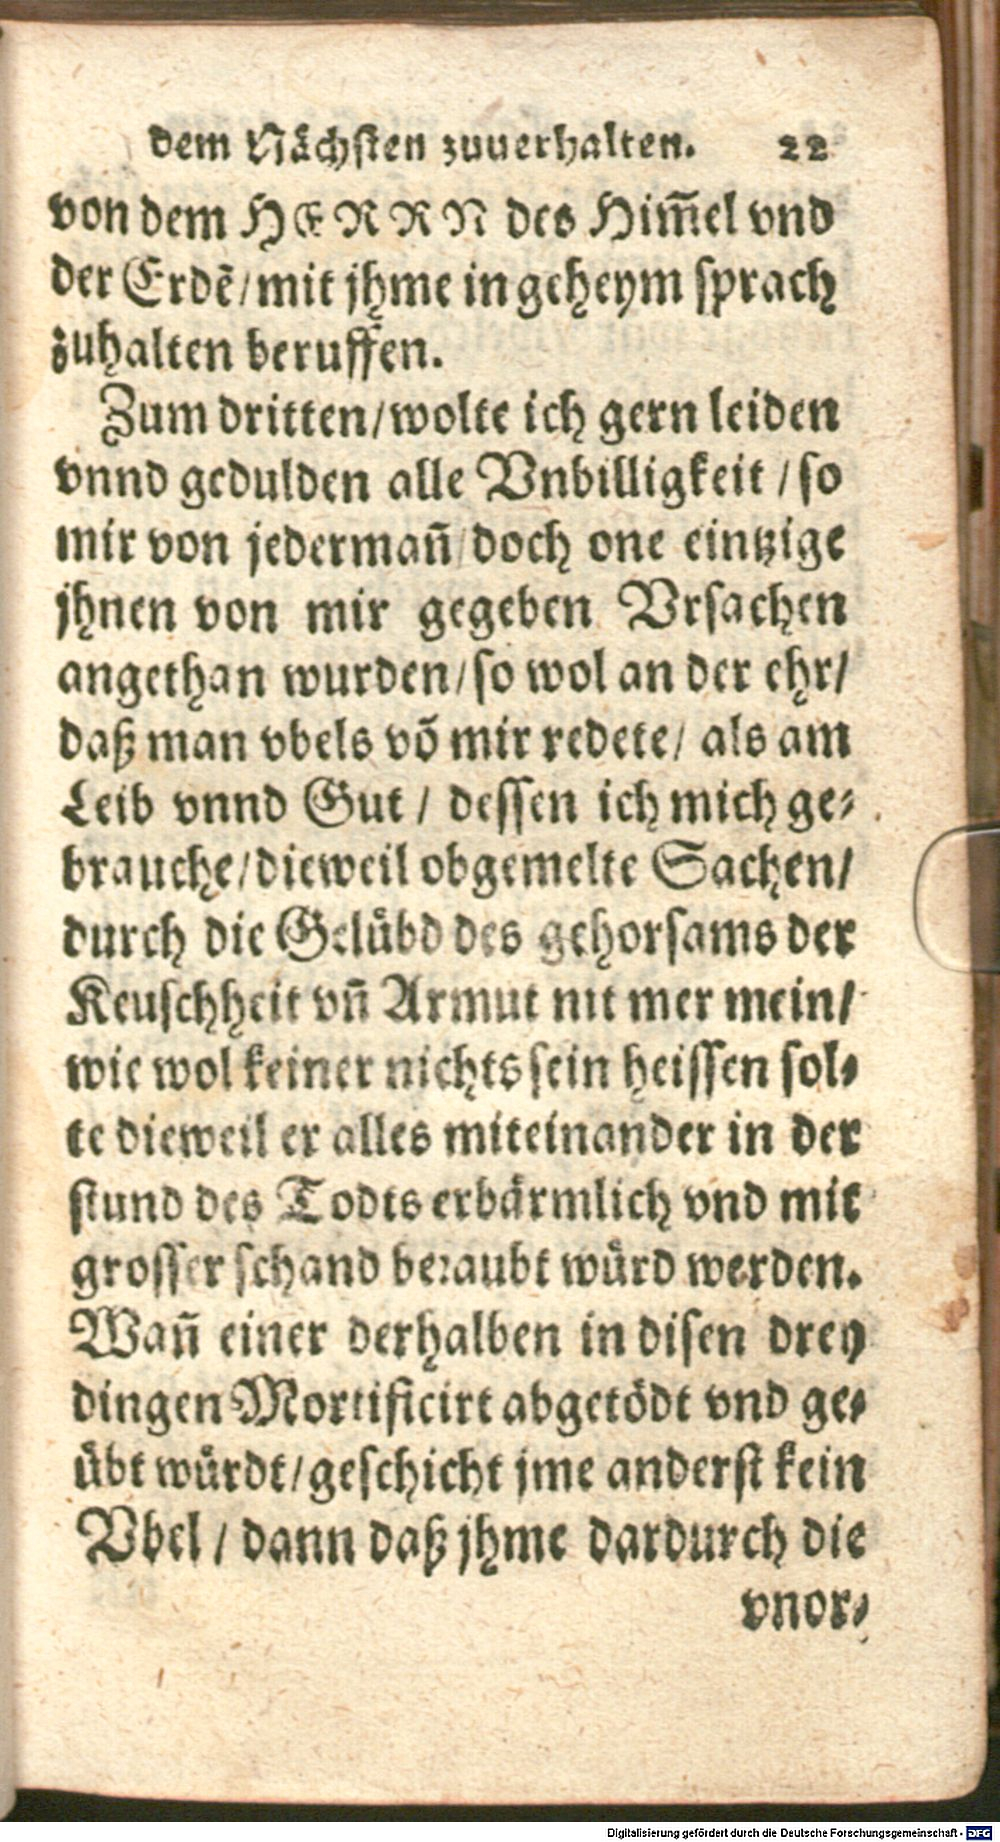 dem Nächsten zuuerhalten. 22
von dem HERRN des Him̃el vnd
der Erdẽ/ mit jhme in geheym sprach
zuhalten beruffen.
Zum dritten/ wolte ich gern leiden
vnnd gedulden alle Vnbilligkeit / so
mir von jedermañ/ doch one eintzige
jhnen von mir gegeben Vrsachen
angethan wurden/ so wol an der ehr/
daß man vbels võ mir redete/ als am
Leib vnnd Gut / dessen ich mich ge⸗
brauche/ dieweil obgemelte Sachen/
durch die Gelübd des gehorsams der
Keuschheit vñ Armut nit mer mein/
wie wol keiner nichts sein heissen sol⸗
te dieweil er alles miteinander in der
stund des Todts erbärmlich vnd mit
grosser schand beraubt würd werden.
Wañ einer derhalben in disen drey
dingen Mortificirt abgetödt vnd ge⸗
übt würdt/ geschicht jme anderst kein
Vbel / dann daß jhme dardurch die
vnor⸗
Digitalisierung gefördert durch die Deutsche Forschungsgemeinschaft - DFG